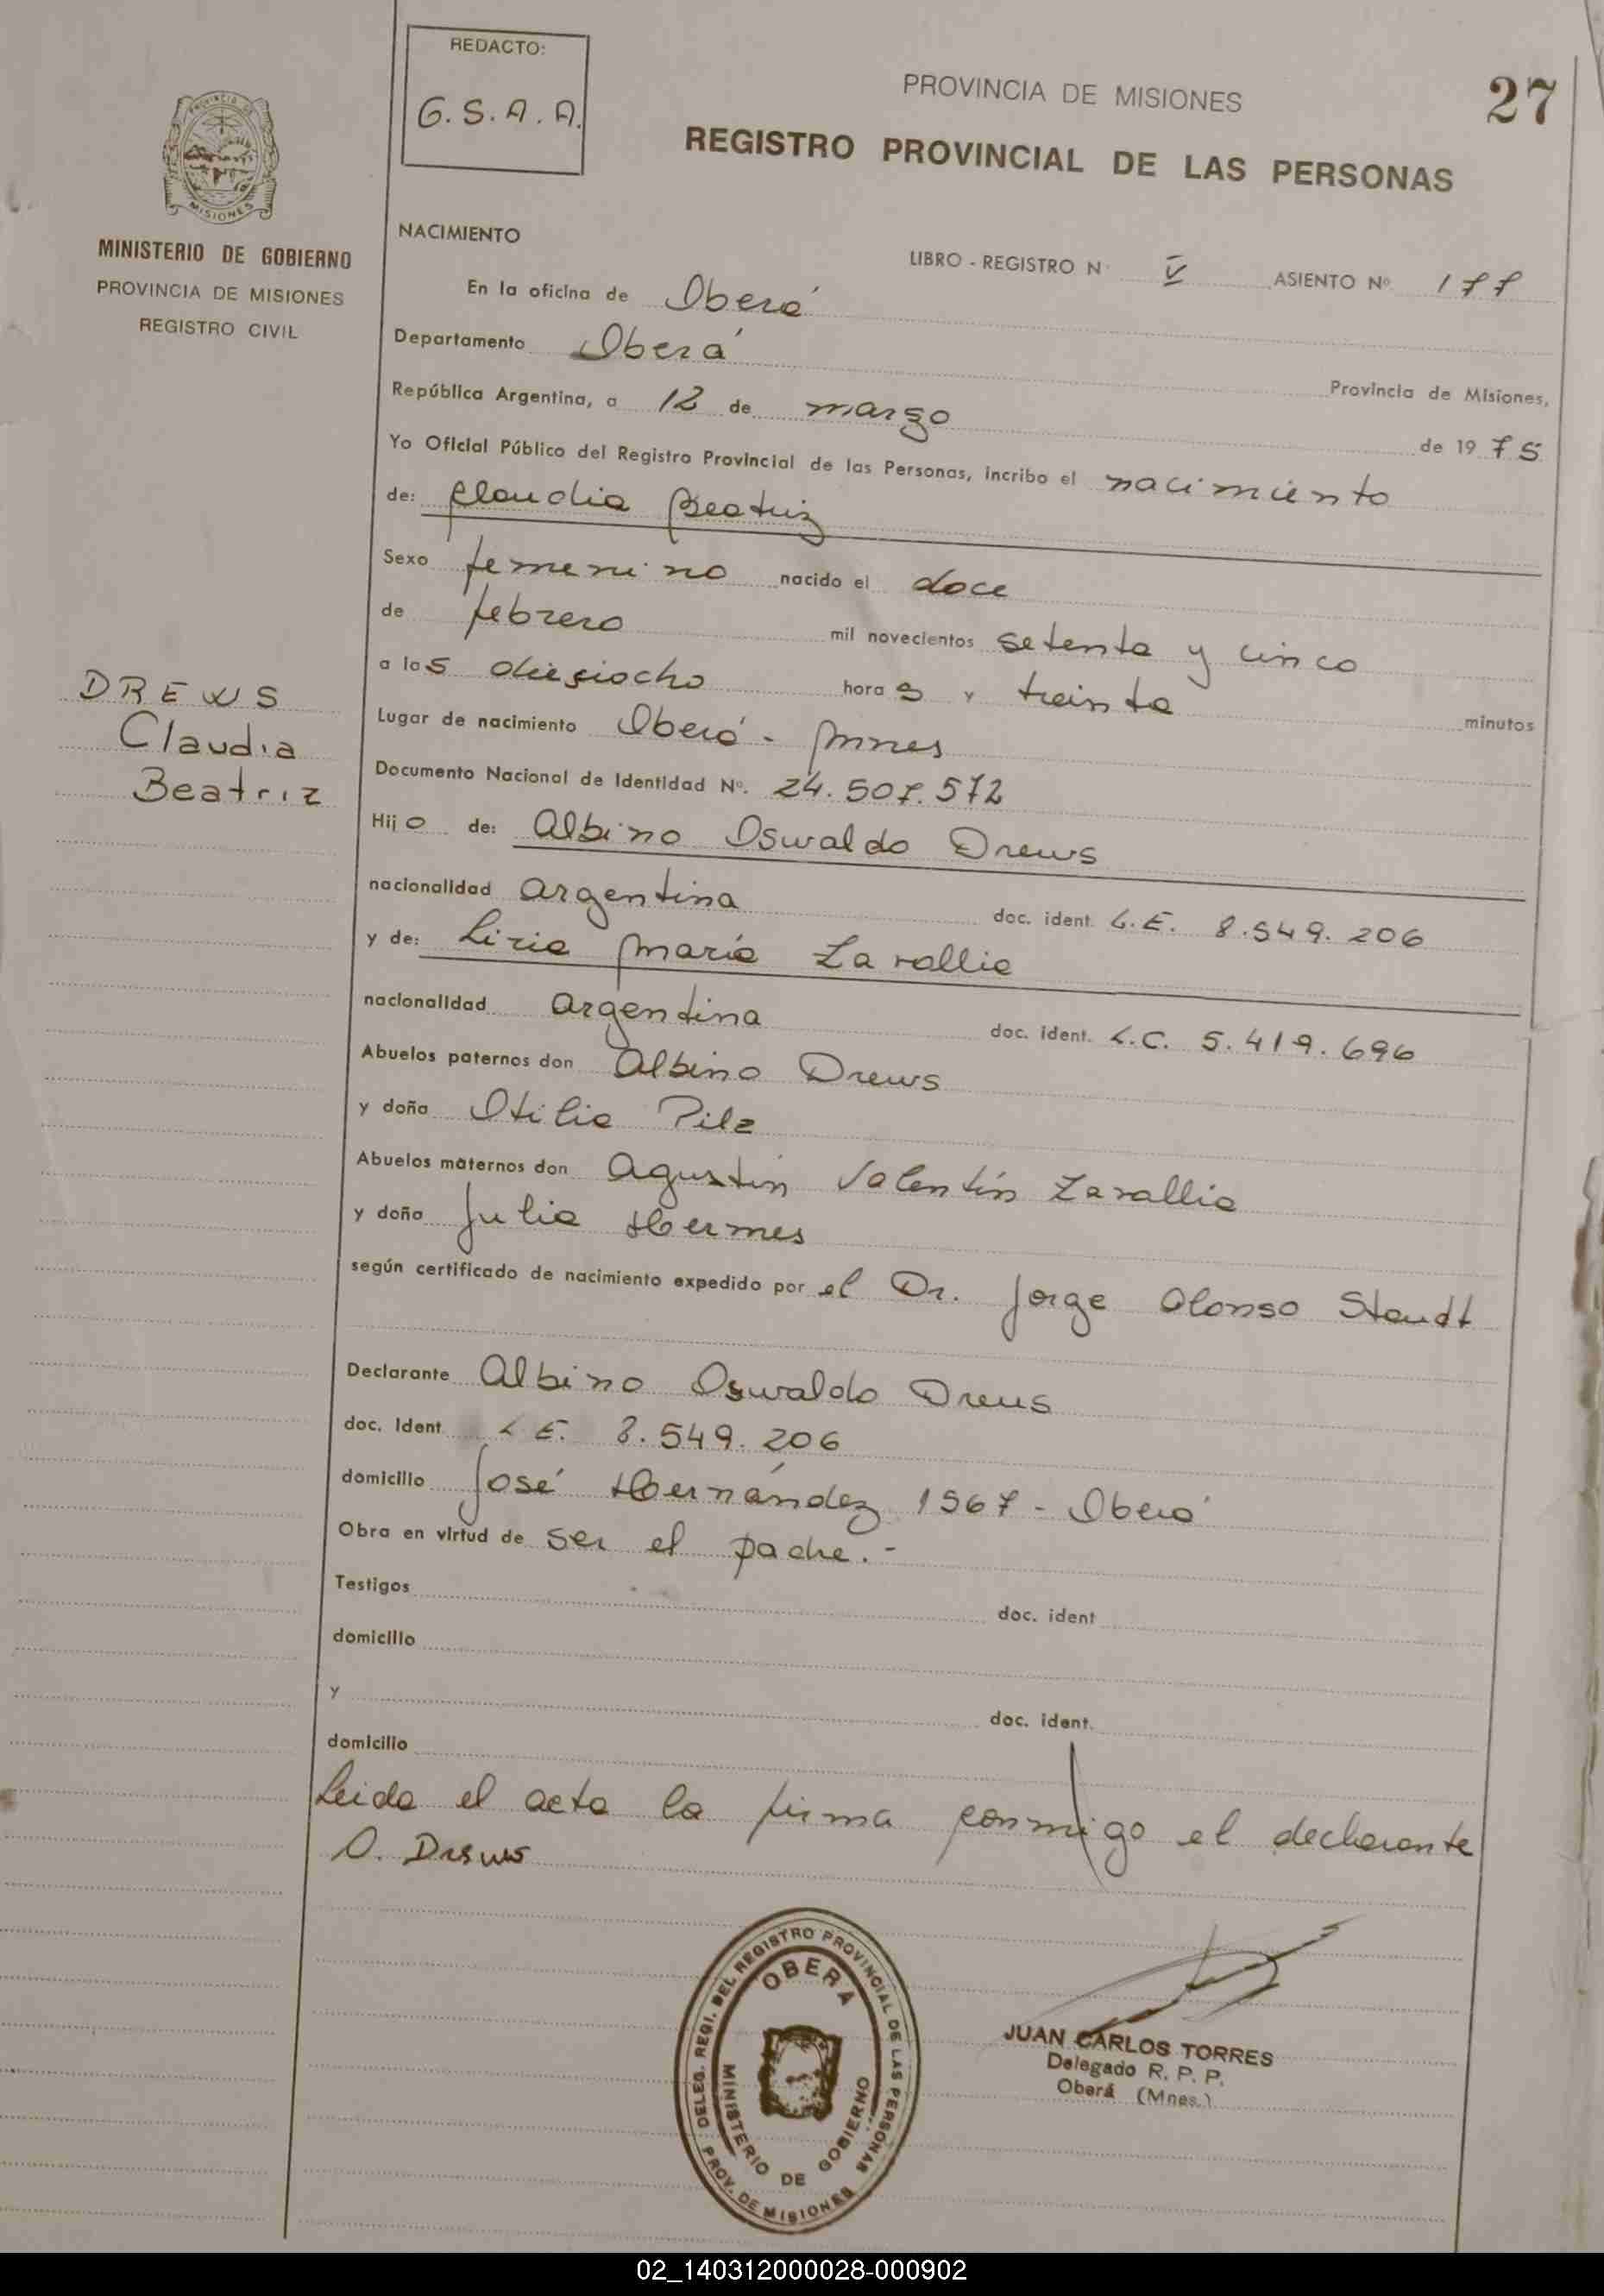 REDACTO:
G. S. A. A.
PROVINCIA DE MISIONES
27
REGISTRO PROVINCIAL DE LAS PERSONAS
MISIONES
MINISTERIO DE GOBIERNO
PROVINCIA DE MISIONES
REGISTRO CIVIL
NACIMIENTO
LIBRO - REGISTRO N° V ASIENTO Nº 177
En la oficina de Oberá
Departamento Oberá
Provincia de Misiones,
República Argentina, a 12 de marzo de 1975
Yo Oficial Público del Registro Provincial de las Personas, incribo el nacimiento
de: Claudia Beatriz
Sexo femenino nacido el doce
de febrero mil novecientos setenta y cinco
a las diesiocho horas y treinta minutos
DREWS
Claudia
Beatriz
Lugar de nacimiento Oberá - Mnes
Documento Nacional de Identidad Nº. 24.507.572
Hijo de: Albino Oswaldo Drews
nacionalidad argentina doc. ident. L.E. 8.549.206
y de: Liria María Zarallia
nacionalidad argentina doc. ident. L.C. 5.419.696
Abuelos paternos don Albino Drews
y doña Otilia Pilz
Abuelos maternos don Agustín Valentín Zarallia
y doña Julia Hermes
según certificado de nacimiento expedido por el Dr. Jorge Alonso Staudt
Declarante Albino Oswaldo Drews
doc. Ident L E. 8.549.206
domicilio José Hernández 1567 - Oberá
Obra en virtud de ser el padre.-
Testigos doc. ident
domicilio
y doc. ident.
domicilio
Leida el acta la firma conmigo el declarante
O. Drews
DELEG. REGI. DEL REGISTRO PROVINCIAL DE LAS PERSONAS
OBERA
MINISTERIO DE GOBIERNO
PROV. DE MISIONES
JUAN CARLOS TORRES
Delegado R. P. P.
Oberá (Mnes.)
02_140312000028-000902